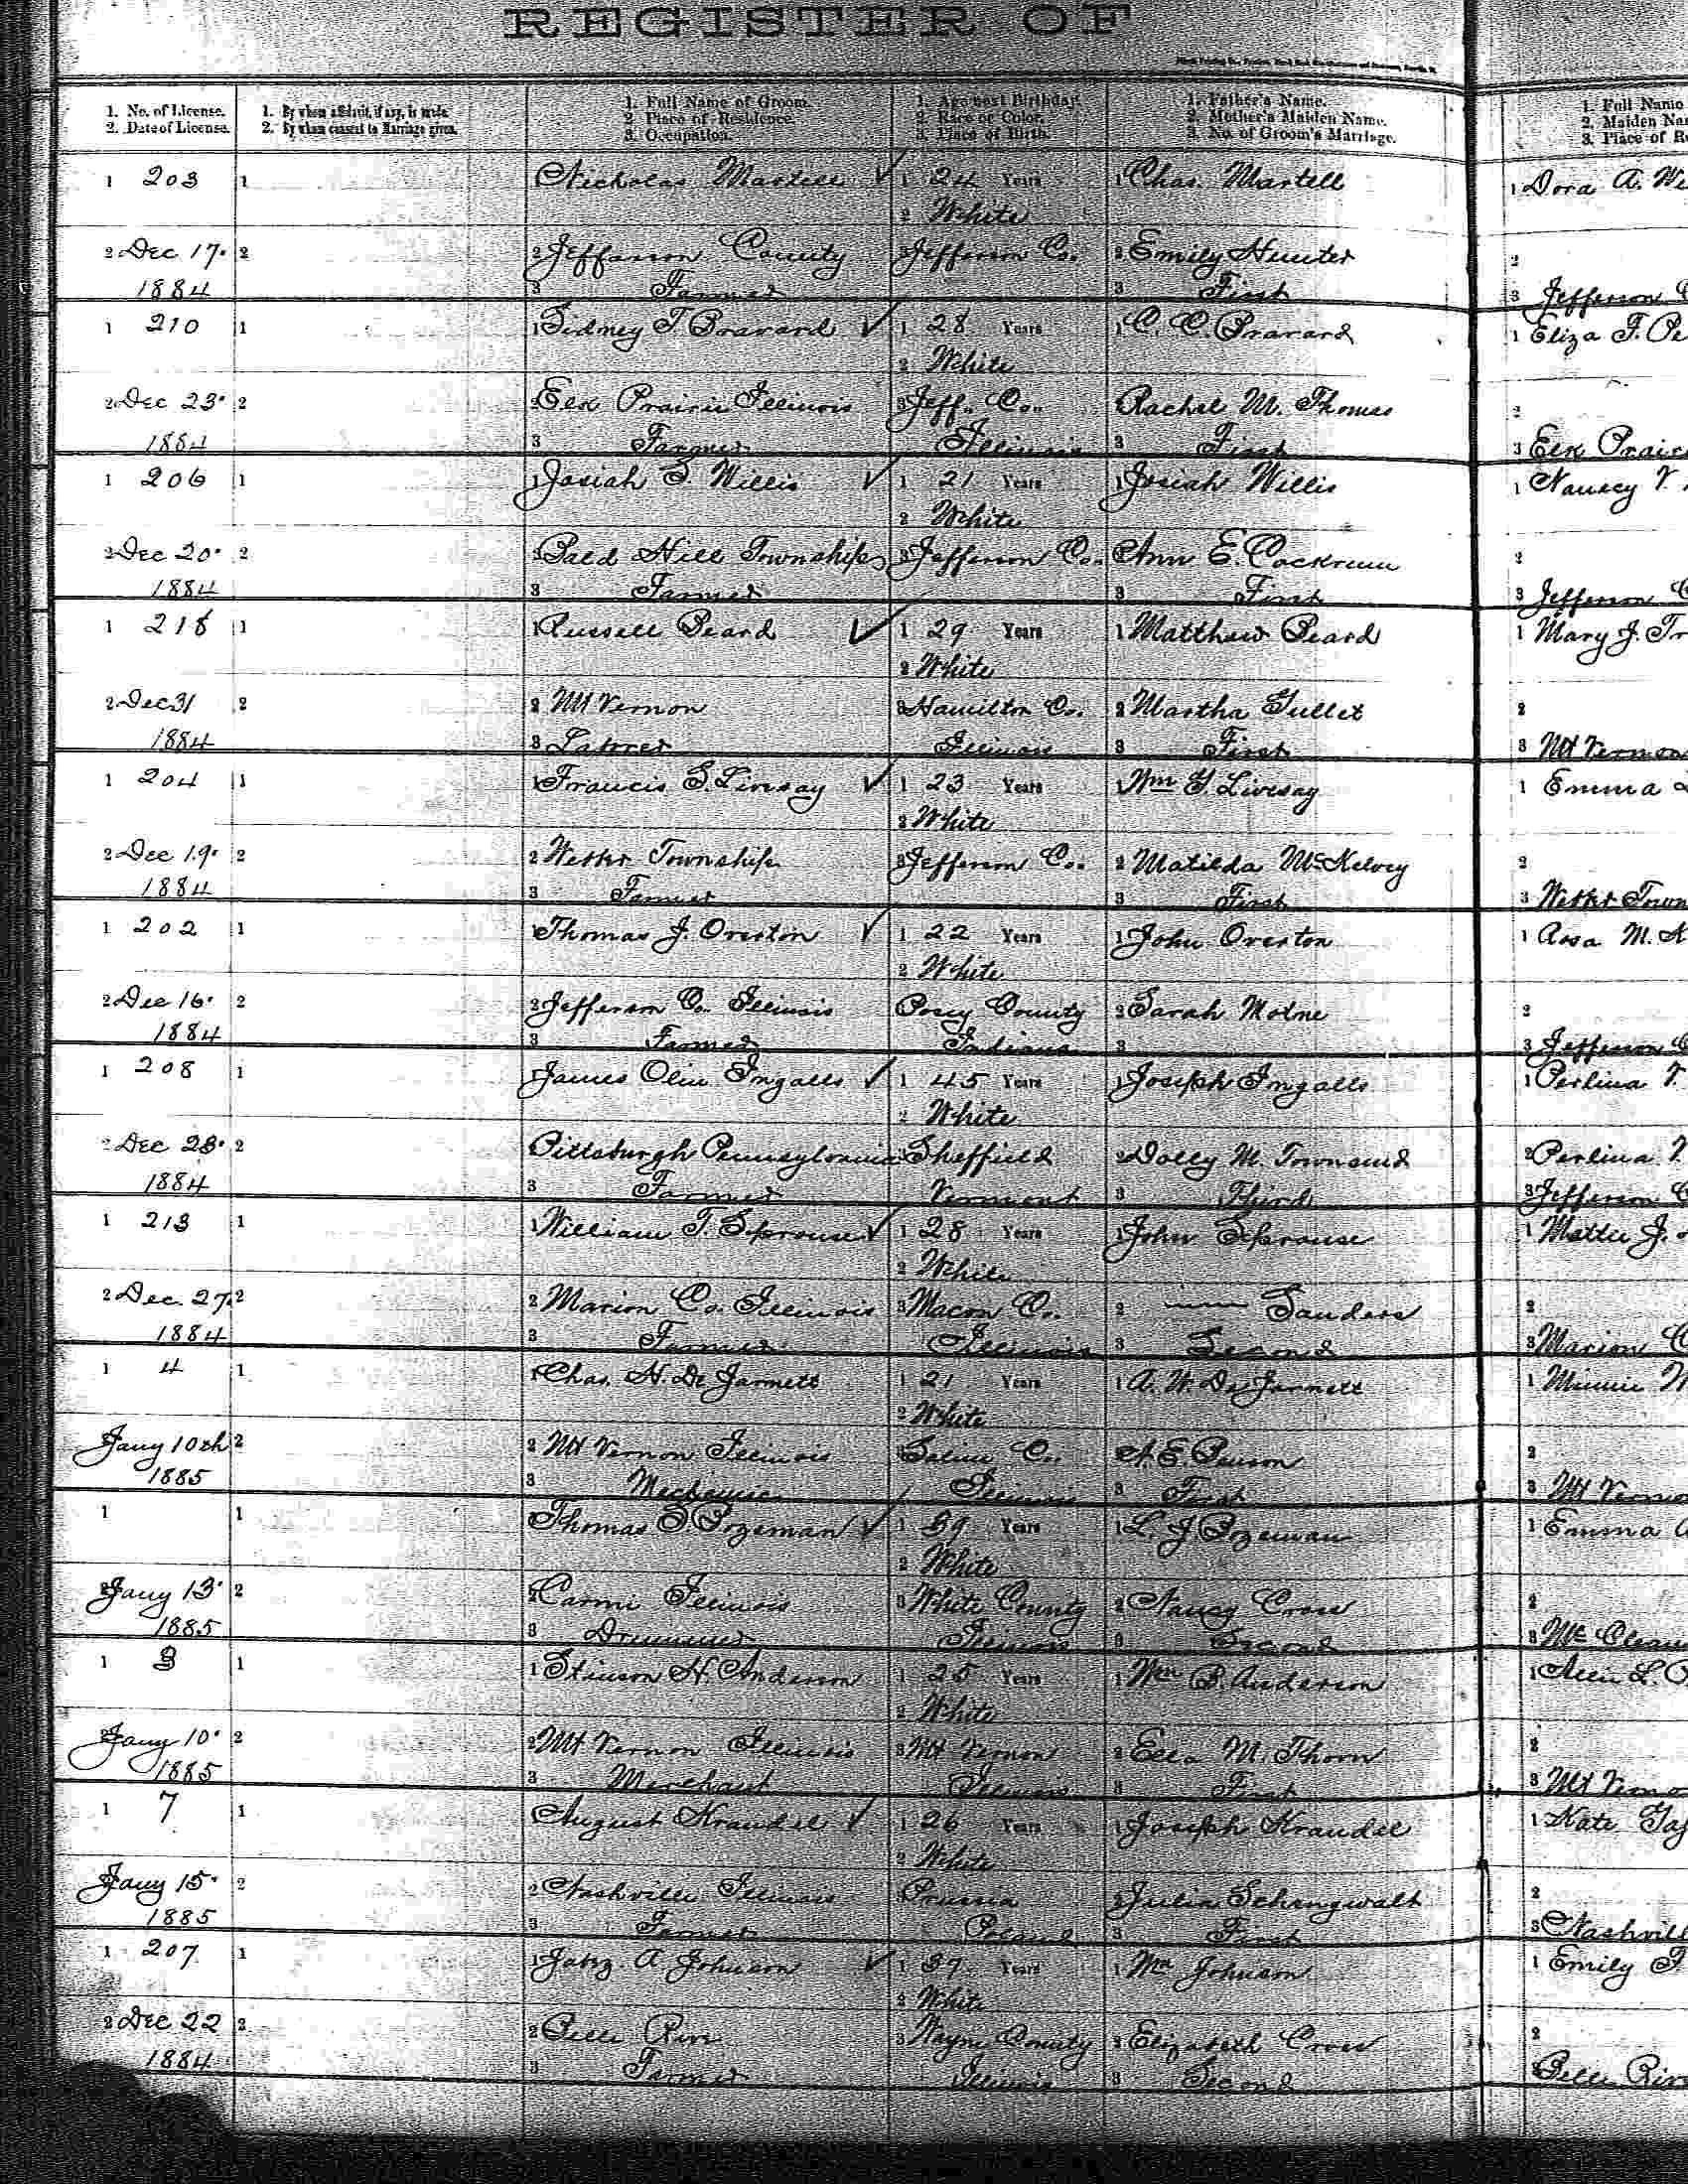 REGISTER OF
1. No. of License.
2. Date of License.
1. By whom affidavit, if any, is made.
2. By whom consent to Marriage given.
1. Full Name of Groom.
2. Place of Residence.
3. Occupation.
1. Age next Birthday.
2. Race or Color.
3. Place of Birth.
1. Father's Name.
2. Mother's Maiden Name.
3. No. of Groom's Marriage.
1. Full Name
2. Maiden Na
3. Place of R
1 203 1 Nicholas Martell ✓ 1 24 Years 1 Chas. Martell 1 Dora A. We
2 White
2 Dec 17. 2 2 Jefferson County 3 Jefferson Co. 2 Emily Hunter 2
1884 3 Farmer 3 First 3 Jefferson C
1 210 1 1 Sidney T Bravard ✓ 1 28 Years 1 C. C. Bravard 1 Eliza F. Pe
2 White
2 Dec 23. 2 2 Elk Prairie Illinois 3 Jeff. Co. Rachel M. Thomas 2
1884 3 Farmer Illinois 3 First 3 Elk Prair
1 206 1 1 Josiah Willis ✓ 1 21 Years 1 Josiah Willis 1 Nancy V.
2 White
2 Dec 20. 2 2 Bald Hill Township 3 Jefferson Co. Ann E. Cockrum 2
1884 3 Farmer 3 First 3 Jefferson C
1 218 1 1 Russell Beard ✓ 1 29 Years 1 Matthew Beard 1 Mary J. Tr
2 White
2 Dec 31 2 2 Mt Vernon 3 Hamilton Co. 2 Martha Gullet 2
1884 3 Laborer Illinois 3 First 3 Mt Vernon
1 204 1 1 Francis S. Livesay ✓ 1 23 Years 1 Wm G. Livesay 1 Emma
2 White
2 Dec 19. 2 2 Webber Township 3 Jefferson Co. 2 Matilda McKelvey 2
1884 3 Farmer 3 First 3 Webber Town
1 202 1 1 Thomas J. Overton ✓ 1 22 Years 1 John Overton 1 Rosa M.
2 White
2 Dec 16. 2 2 Jefferson Co. Illinois Posey County 2 Sarah Motne 2
1884 3 Farmer Indiana 3 3 Jefferson C
1 208 1 1 James Olin Ingalls ✓ 1 45 Years 1 Joseph Ingalls 1 Perlina V.
2 White
2 Dec 23. 2 Pittsburgh Pennsylvania Sheffield 2 Dolly M. Townsend 2 Perlina
1884 3 Farmer Vermont 3 Third 3 Jefferson C
1 213 1 1 William T. Sprouse ✓ 1 28 Years 1 John Sprouse 1 Mattie J.
2 White
2 Dec. 27. 2 2 Marion Co. Illinois 3 Macon Co. 2 —— Sanders 2
1884 3 Farmer Illinois 3 Second 3 Marion C
1 4 1 1 Chas. H. De Jarnett 1 21 Years 1 A. W. De Jarnett 1 Minnie
2 White
Jany 10th 2 2 Mt Vernon Illinois Saline Co. A. E. Penson 2
1885 3 Mechanic Illinois 3 First 3 Mt Vernon
1 1 Thomas Bozeman ✓ 1 39 Years 1 L. J. Bozeman 1 Emma
2 White
2 Jany 13. 2 2 Carmi Illinois 3 White County 2 Nancy Cross 2
1885 3 Drummer Illinois 3 Second 3 Mc Clean
1 3 1 1 Stinson H. Anderson 1 25 Years 1 Wm B. Anderson 1 L.
2 White
2 Jany 10. 2 2 Mt Vernon Illinois 3 Mt Vernon 2 Ella M. Thorn 2
1885 3 Merchant Illinois 3 First 3 Mt Verno
1 7 1 August Krandel ✓ 1 26 Years 1 Joseph Krandel 1 Kate
2 White
2 Jany 15. 2 2 Nashville Illinois Prussia 2 Julia Schengwalt 2
1885 3 Farmer Poland 3 First 3 Nashvill
1 207 1 1 A Johnson ✓ 1 37 Years 1 Wm Johnson 1 Emily
2 White
2 Dec 22 2 2 Belle Rive 3 Wayne County 2 Elizabeth Cross 2
1884 3 Farmer Illinois 3 Second Belle Riv